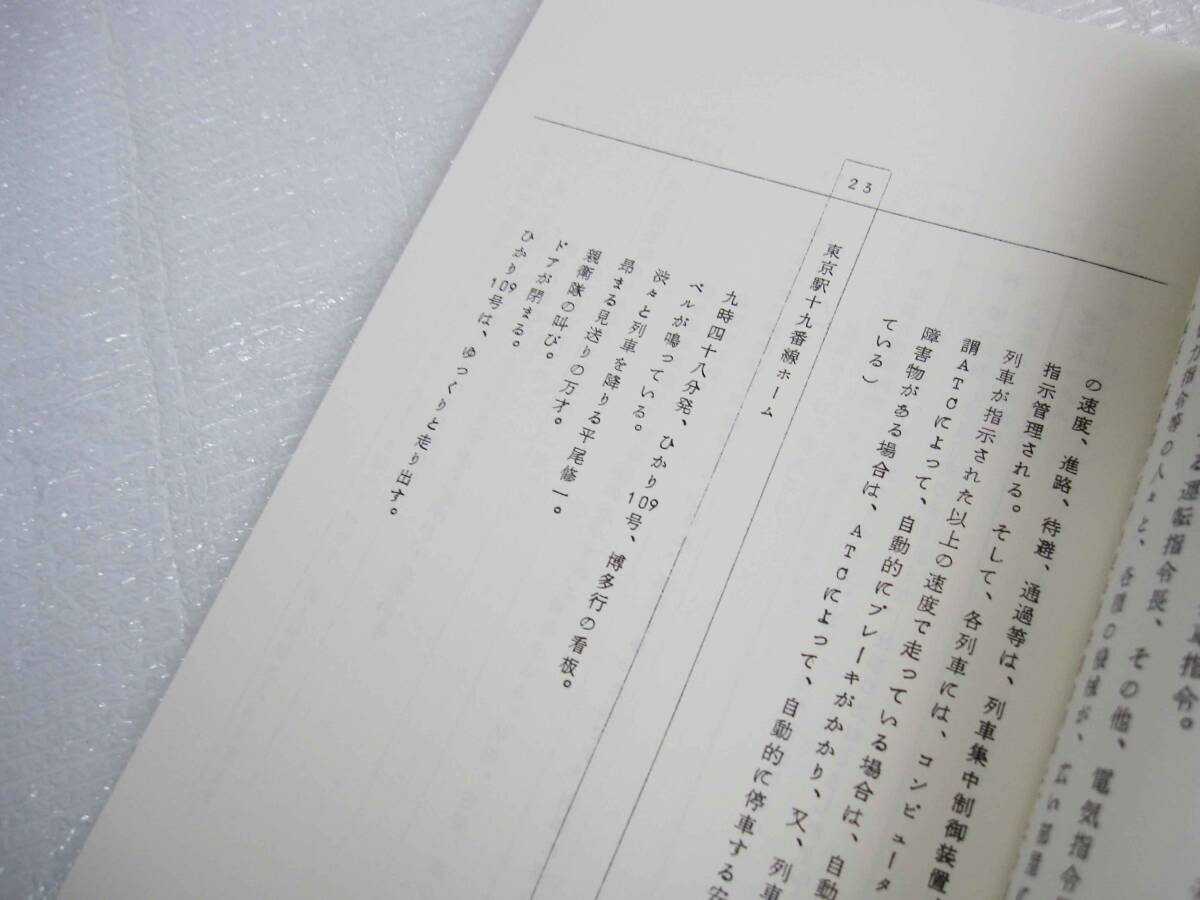 運転指令長、その他、電気指令
の速度、進路、待避、通過等は、列車集中制御装置
指示管理される。そして、各列車には、コンピュータ
列車が指示された以上の速度で走っている場合は、自動
謂ATCによって、自動的にブレーキがかかり、又、列車
障害物がある場合は、ATCによって、自動的に停車する安
ている)
23
東京駅十九番線ホーム
九時四十八分発、ひかり109号、博多行の看板。
ベルが鳴っている。
渋々と列車を降りる平尾修一。
昂まる見送りの万才。
親衛隊の叫び。
ドアが閉まる。
ひかり109号は、ゆっくりと走り出す。